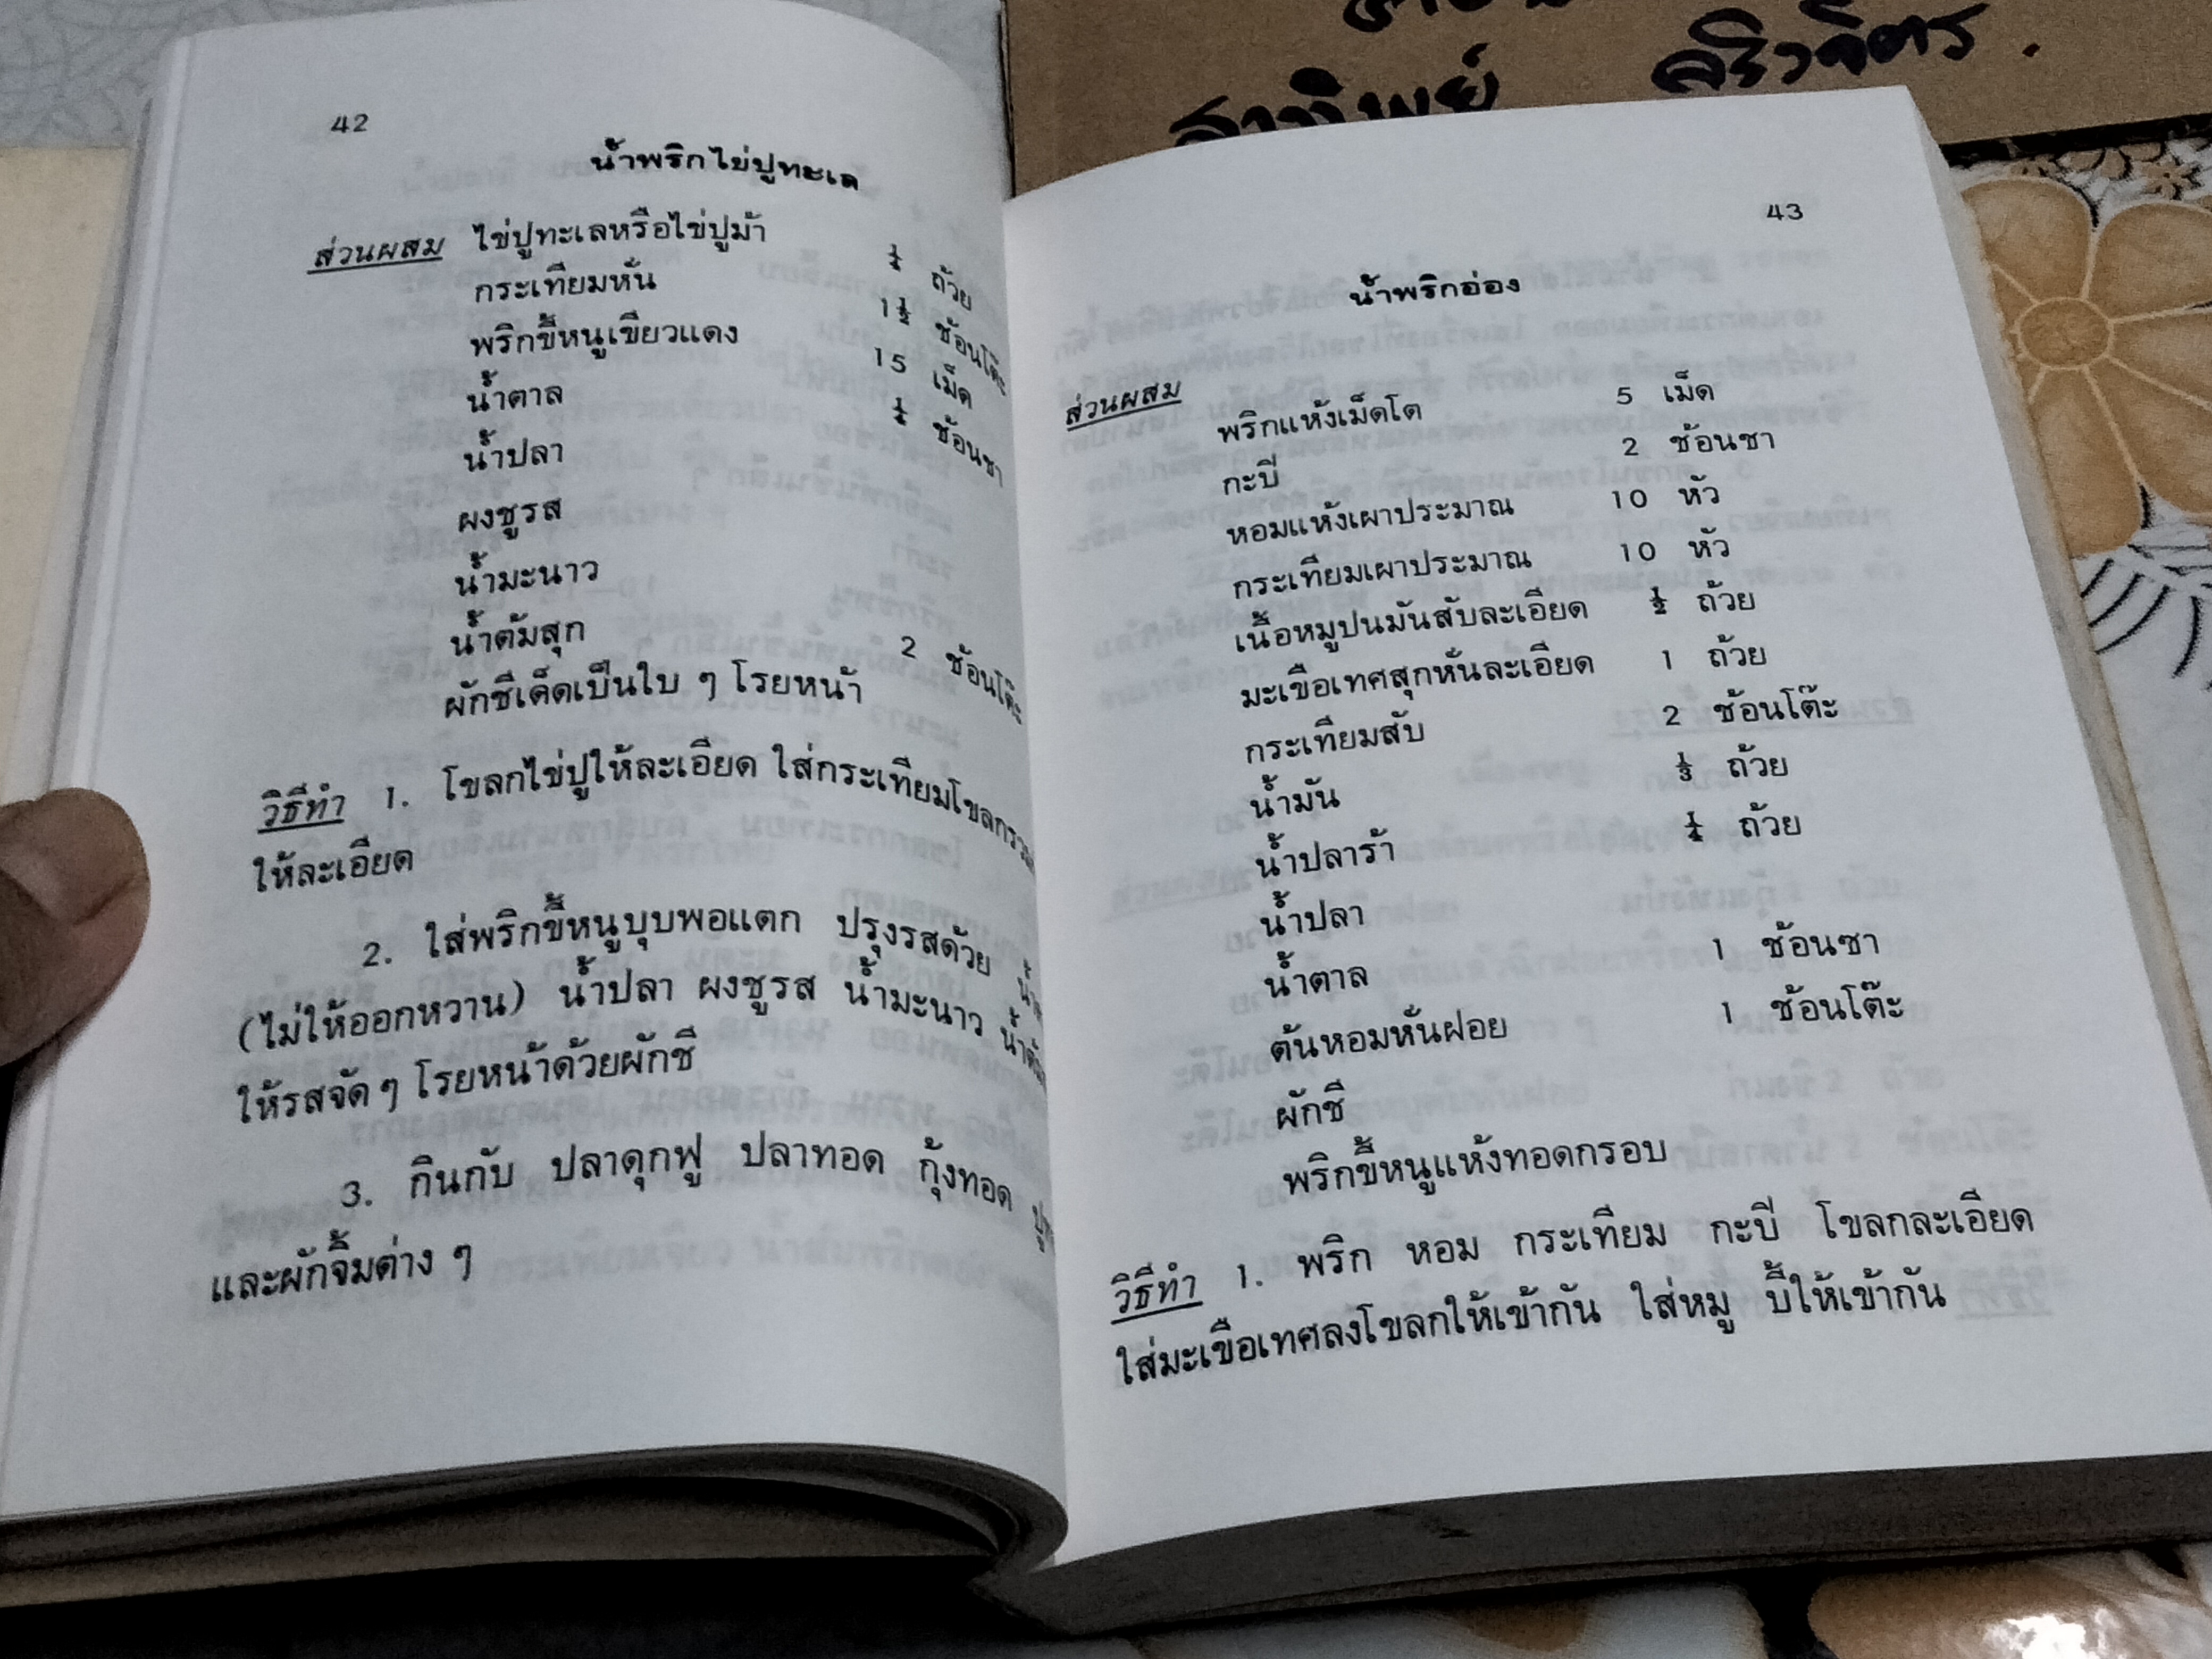 สาทิพย์
42
น้ำพริกไข่ปูทะเล
ส่วนผสม ไข่ปูทะเลหรือไข่ปูม้า ¼ ถ้วย
กระเทียมหั่น 1½ ช้อนโต๊ะ
พริกขี้หนูเขียวแดง 15 เม็ด
น้ำตาล ¼ ช้อนชา
น้ำปลา
ผงชูรส
น้ำมะนาว
น้ำต้มสุก 2 ช้อนโต๊ะ
ผักชีเด็ดเป็นใบ ๆ โรยหน้า
วิธีทำ 1. โขลกไข่ปูให้ละเอียด ใส่กระเทียมโขลกรวม
ให้ละเอียด
2. ใส่พริกขี้หนูบุบพอแตก ปรุงรสด้วย
(ไม่ให้ออกหวาน) น้ำปลา ผงชูรส น้ำมะนาว
ให้รสจัด ๆ โรยหน้าด้วยผักชี
3. กินกับ ปลาดุกฟู ปลาทอด กุ้งทอด
และผักจิ้มต่าง ๆ
43
น้ำพริกอ่อง
ส่วนผสม พริกแห้งเม็ดโต 5 เม็ด
กะบี 2 ช้อนชา
หอมแห้งเผาประมาณ 10 หัว
กระเทียมเผาประมาณ 10 หัว
เนื้อหมูปนมันสับละเอียด ½ ถ้วย
มะเขือเทศสุกหั่นละเอียด 1 ถ้วย
กระเทียมสับ 2 ช้อนโต๊ะ
น้ำมัน ⅓ ถ้วย
น้ำปลาร้า ¼ ถ้วย
น้ำปลา
น้ำตาล 1 ช้อนชา
ต้นหอมหั่นฝอย 1 ช้อนโต๊ะ
ผักชี
พริกขี้หนูแห้งทอดกรอบ
วิธีทำ 1. พริก หอม กระเทียม กะบี โขลกละเอียด
ใส่มะเขือเทศลงโขลกให้เข้ากัน ใส่หมู บี้ให้เข้ากัน